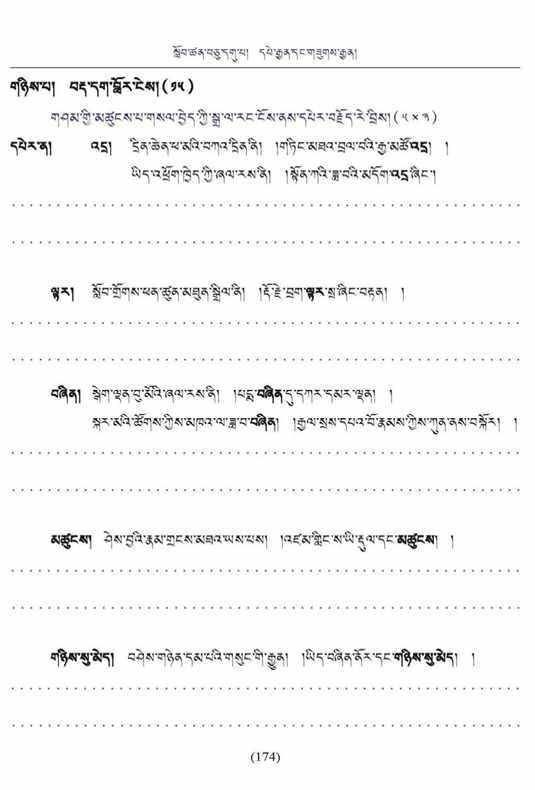 སློབ་ཚན་བཅུ་དགུ་པ། དཔེ་རྒྱན་དང་གཟུགས་རྒྱན།
གཉིས་པ། བརྡ་དག་སྦྱོར་ངེས། (༡༥)
གཤམ་གྱི་མཚུངས་པ་གསལ་བྱེད་ཀྱི་སྒྲ་ལ་རང་ངོས་ནས་དཔེར་བརྗོད་རེ་བྲིས། (༥ × ༣)
དཔེར་ན། འདྲ། དྲིན་ཆེན་ཕ་མའི་བཀའ་དྲིན་ནི། །གཏིང་མཐའ་བྲལ་བའི་རྒྱ་མཚོ་འདྲ། །
ཡིད་འཕྲོག་ཁྱེད་ཀྱི་ཞལ་རས་ནི། །སྟོན་ཀའི་ཟླ་བའི་མདོག་འདྲ་ཞིང་།
ལྟར། སློབ་གྲོགས་ཕན་ཚུན་མཐུན་སྒྲིལ་ནི། །རྡོ་རྗེ་བྲག་ལྟར་སྲ་ཞིང་བརྟན། །
བཞིན། སྒེག་ལྡན་བུ་མོའི་ཞལ་རས་ནི། །པདྨ་བཞིན་དུ་དཀར་དམར་ལྡན། །
སྐར་མའི་ཚོགས་ཀྱིས་མཁའ་ལ་ཟླ་བ་བཞིན། །རྒྱལ་སྲས་དཔའ་བོ་རྣམས་ཀྱིས་ཀུན་ནས་བསྐོར། །
མཚུངས། ཤེས་བྱའི་རྣམ་གྲངས་མཐའ་ཡས་པས། །འཛམ་གླིང་ས་ཡི་རྡུལ་དང་མཚུངས། །
གཉིས་སུ་མེད། བཤེས་གཉེན་དམ་པའི་གསུང་གི་རྒྱུན། །ཡིད་བཞིན་ནོར་དང་གཉིས་སུ་མེད། །
(174)